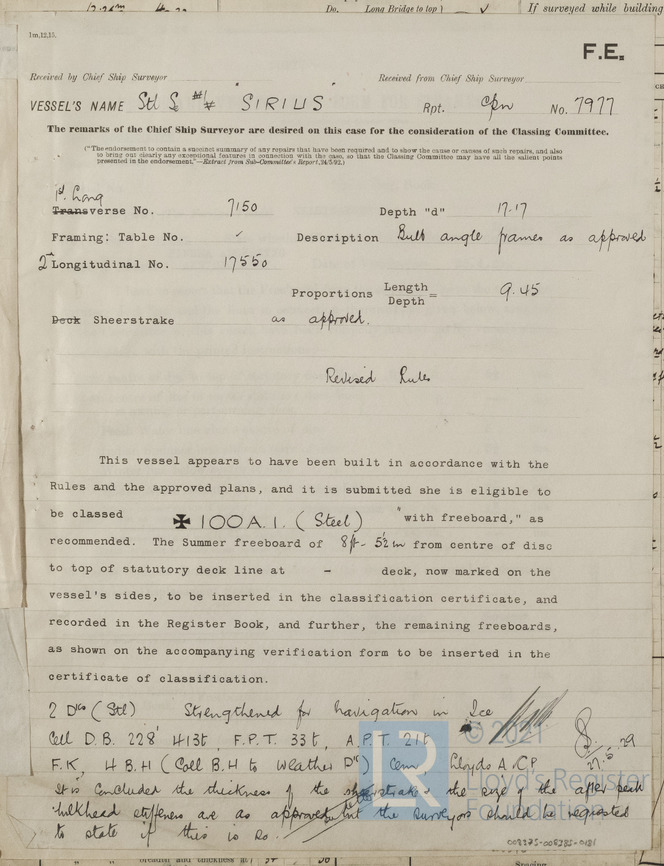 Do. Long Bridge to top) ✓ If surveyed while building
1m,12,15.
F.E.
Received by Chief Ship Surveyor Received from Chief Ship Surveyor
VESSEL'S NAME Stl S "SIRIUS" Rpt. Cpn No. 7977
The remarks of the Chief Ship Surveyor are desired on this case for the consideration of the Classing Committee.
("The endorsement to contain a succinct summary of any repairs that have been required and to show the cause or causes of such repairs, and also
to bring out clearly any exceptional features in connection with the case, so that the Classing Committee may have all the salient points
presented in the endorsement."—Extract from Sub-Committee's Report, 24/5/92.)
1st Long
Transverse No. 7150 Depth "d" 17.17
Framing: Table No. ✓ Description Bulb angle frames as approved
2nd Longitudinal No. 17550
Proportions Length/Depth = 9.45
Deck Sheerstrake as approved.
Revised Rules
This vessel appears to have been built in accordance with the
Rules and the approved plans, and it is submitted she is eligible to
be classed ✠ 100A.1. (Steel) "with freeboard," as
recommended. The Summer freeboard of 8ft- 5½in from centre of disc
to top of statutory deck line at - deck, now marked on the
vessel's sides, to be inserted in the classification certificate, and
recorded in the Register Book, and further, the remaining freeboards,
as shown on the accompanying verification form to be inserted in the
certificate of classification.
2 Dks (Stl) Strengthened for navigation in Ice
Cell D.B. 228' 413t, F.P.T. 33t, A.P.T. 21t
F.K, 4 B.H (Coll B.H to Weather Dk) Cem, Lloyds A.&C.P.
It is concluded the thickness of the sheerstrake & the size of the after peak
bulkhead stiffeners are as approved but the surveyors should be requested
to state if this is so.
27.5.29
© 2021
Lloyd's Register
Foundation